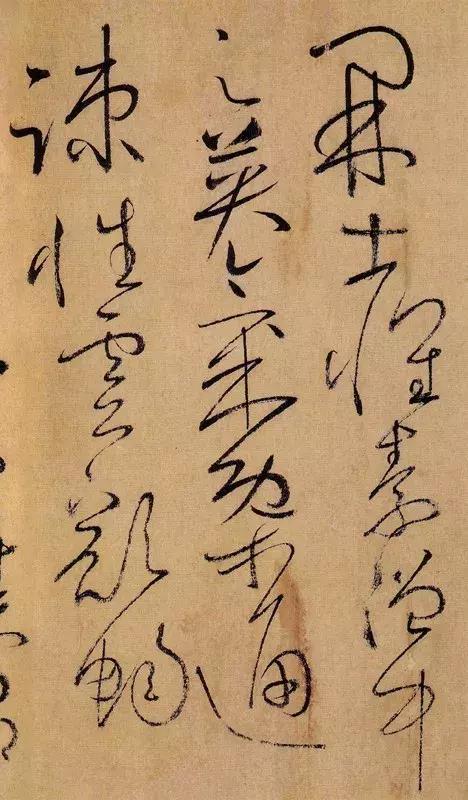 開士懷素僧中
之英氣概通
疎性靈豁暢